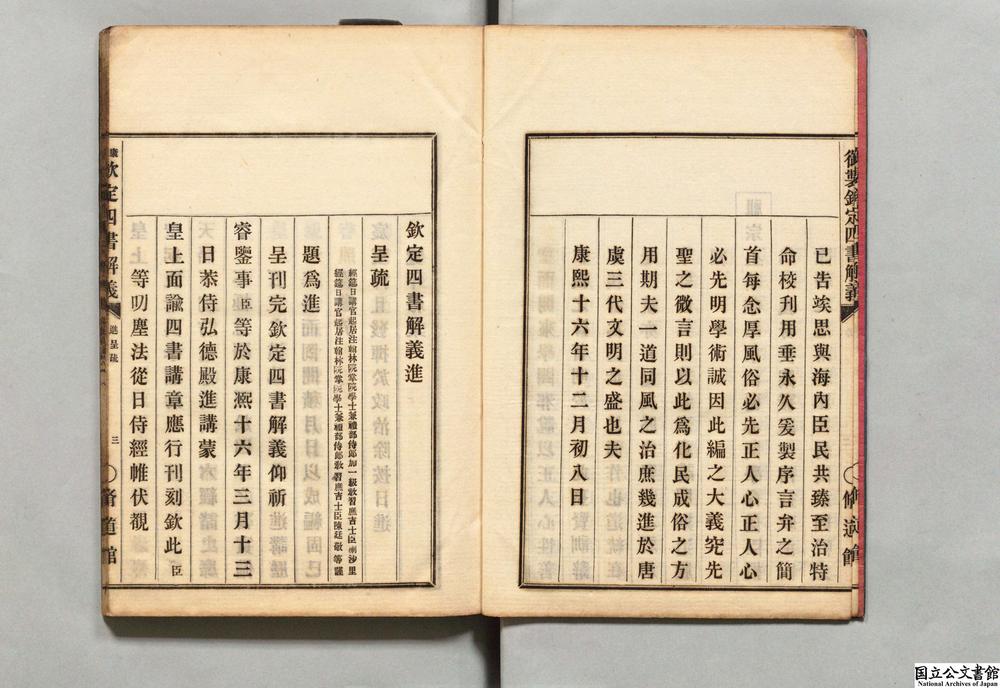 御製欽定四書解義
脩道館
已吿竢思與海內臣民共臻至治特
命校刊用垂永久爰製序言弁之簡
首每念厚風俗必先正人心正人心
必先明學術誠因此編之大義究先
聖之微言則以此為化民成俗之方
用期夫一道同風之治庶幾進於唐
虞三代文明之盛也夫
康熙十六年十二月初八日
欽定四書解義進
呈疏
經筵日講官起居注翰林院掌院學士兼禮部侍郎加一級教習庶吉士臣喇沙里
經筵日講官起居注翰林院掌院學士兼禮部侍郎教習庶吉士臣陳廷敬等謹
題為進
呈刊完欽定四書解義仰祈
睿鑒事臣等於康熙十六年三月十三
日恭侍弘德殿進講蒙
皇上面諭四書講章應行刊刻欽此臣
等叨塵法從日侍經帷伏覩
康熙
欽定四書解義
進呈疏
三
脩道館
国立公文書館
National Archives of Japan